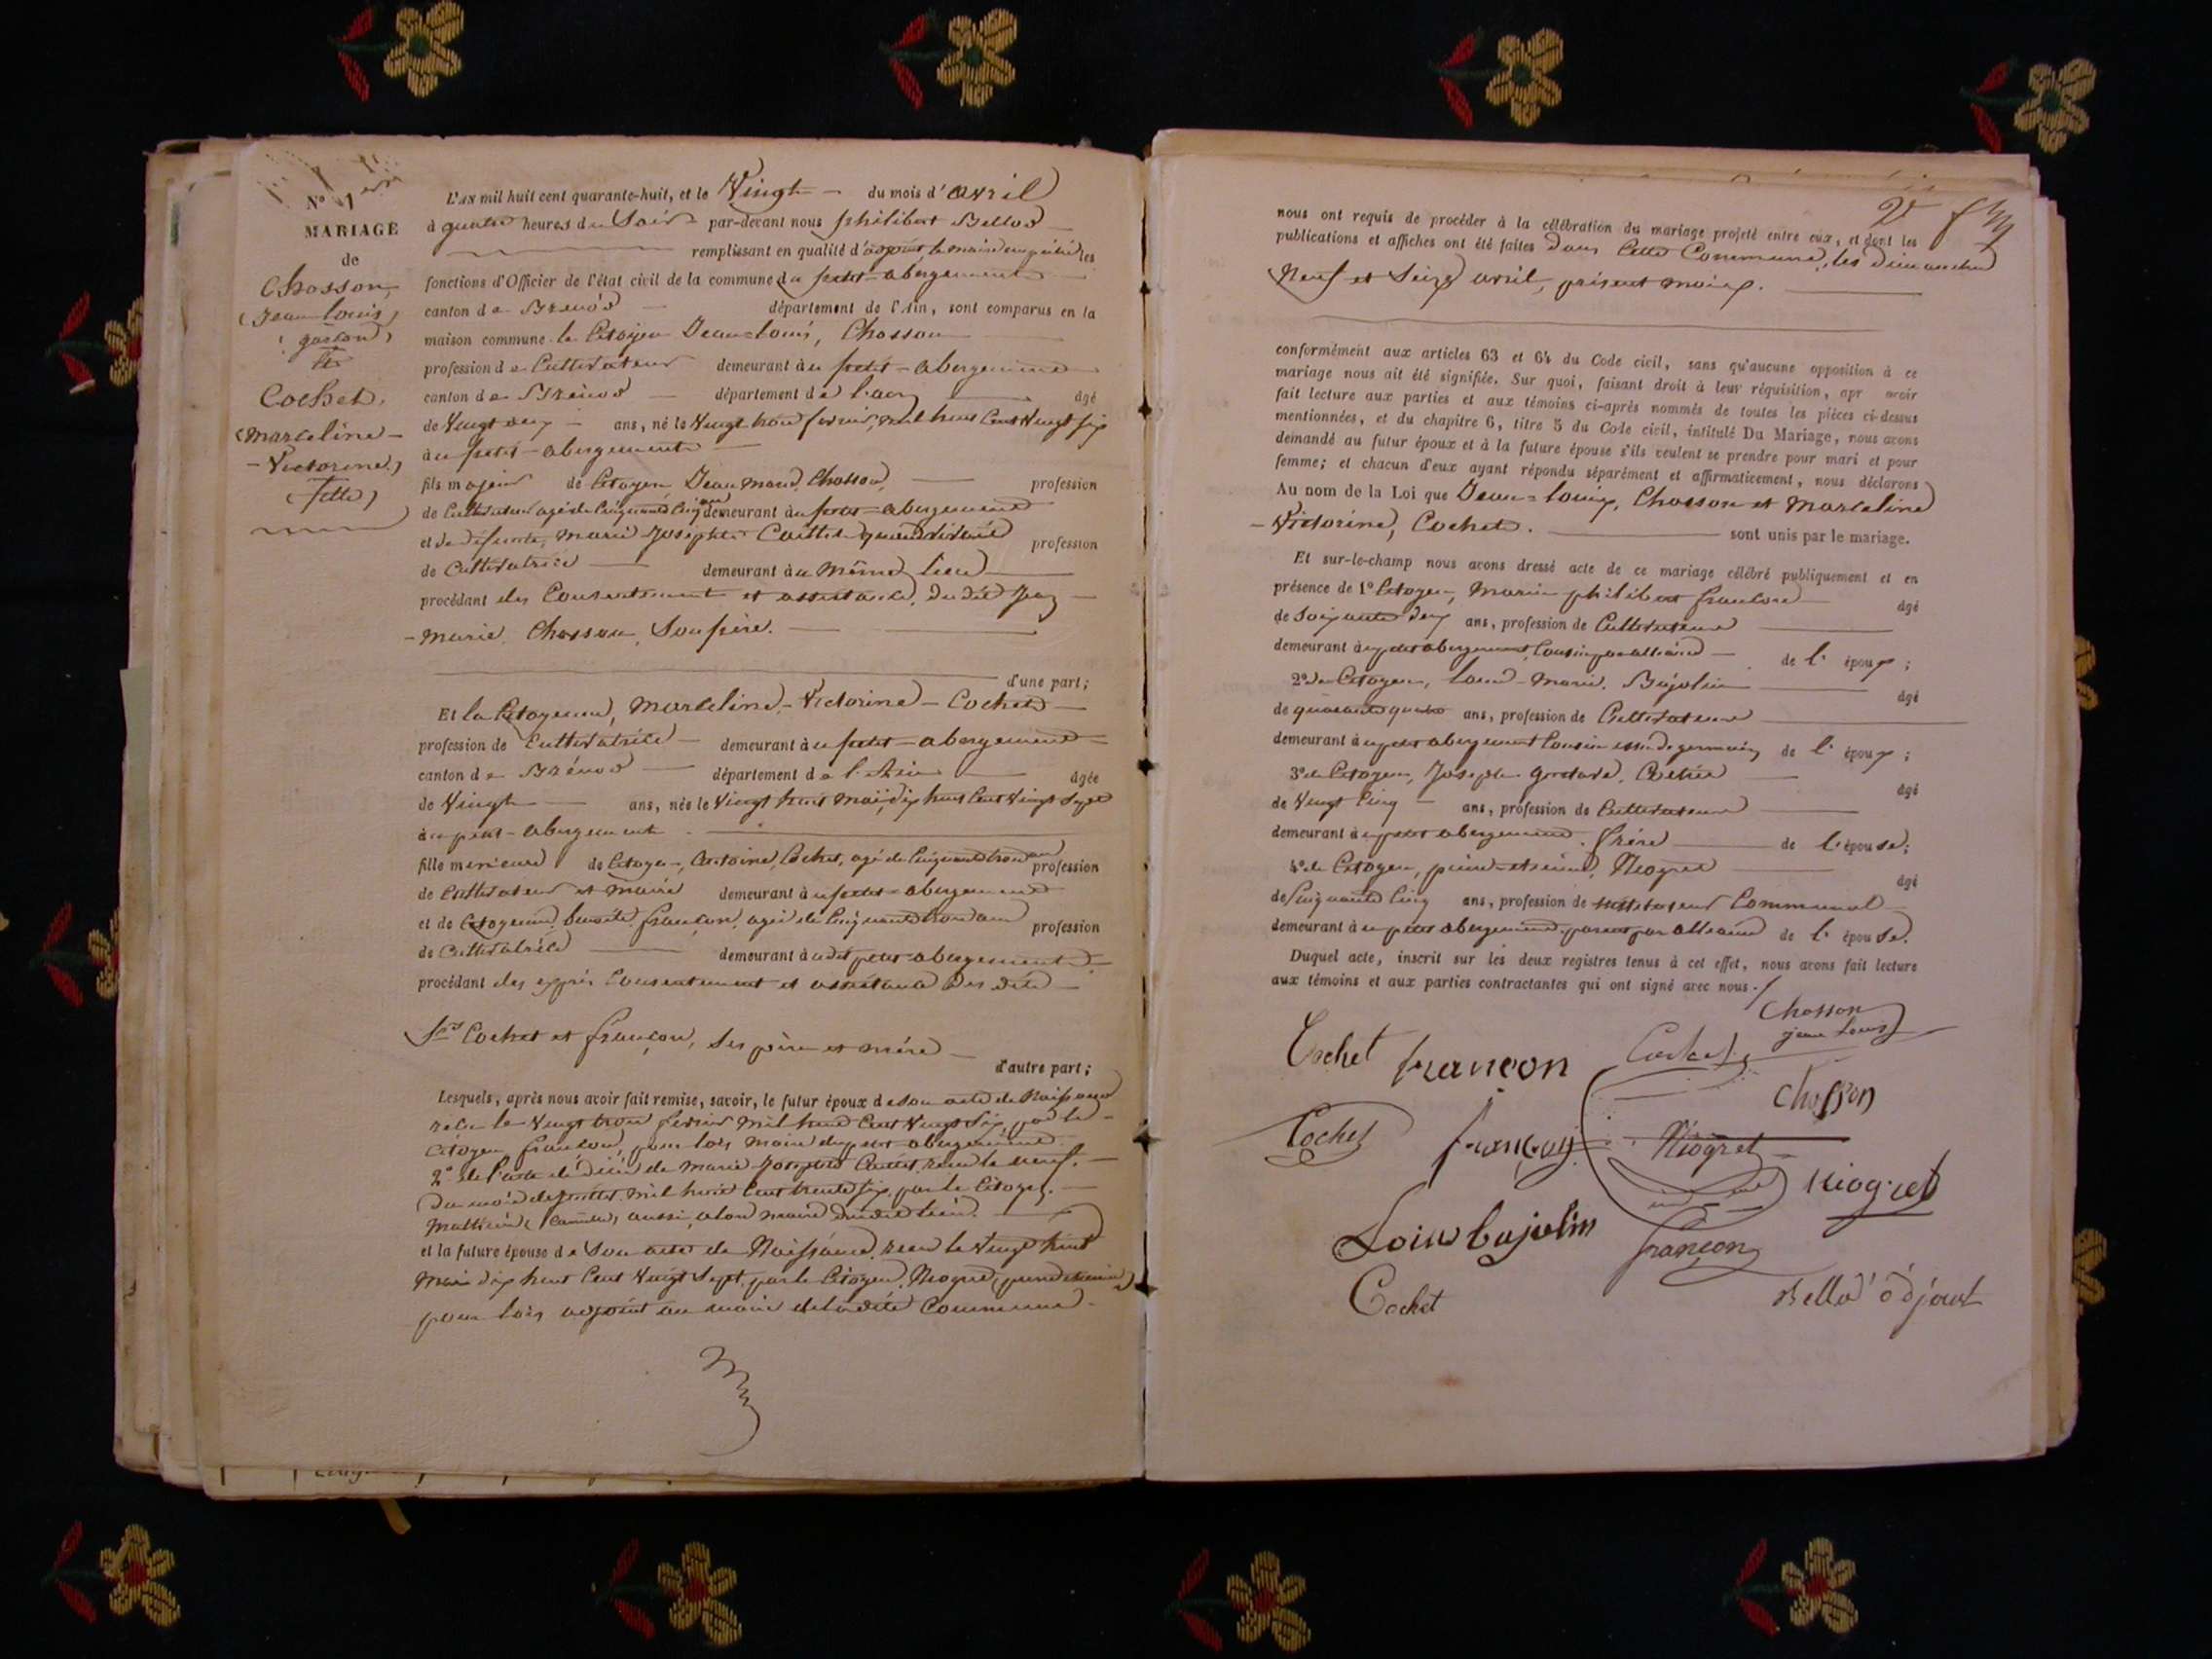 N° 1er
MARIAGE
de
Chosson,
(Jean louis)
(garçon)
et
Cochet.
(marceline-
-Victorine)
(fille)
L'AN mil huit cent quarante-huit, et le Vingt du mois d'avril
à quatre heures du Soir par-devant nous philibert Bellod
remplissant en qualité d'adjoint, le maire empêché les
fonctions d'Officier de l'état civil de la commune du petit-abergement
canton de Brénod département de l'Ain, sont comparus en la
maison commune le Citoyen Jean-louis, Chosson
profession de Cultivateur demeurant à u petit-abergement
canton de Brénod département de l'ain âgé
de Vingt deux ans, né le Vingt trois février, mil huit Cent Vingt six
à u petit-abergement
fils majeur de Citoyen Jean marie, Chosson, profession
de Cultivateur agé de Cinquante Cinq ans demeurant à u petit-abergement
et de défunte, marie Josephte quand vivait profession
de Cultivatrice demeurant à u même lieu
procédant du Consentement et assistance, dudit Jean
-marie, Chosson, Son père.
d'une part;
Et la Citoyenne, Marceline-Victorine-Cochet
profession de Cultivatrice demeurant à u petit-abergement
canton de Brénod département de l'Ain âgée
de Vingt ans, née le Vingt huit mai dix huit Cent Vingt Sept
à u petit-abergement
fille mineure de Citoyen, Antoine, Cochet, agé de Cinquante trois ans profession
de Cultivateur et maire demeurant à u petit-abergement
et de Citoyenne, benoite, françon, agée de Cinquante trois ans profession
de Cultivatrice demeurant à udit petit-abergement
procédant du exprès Consentement et assistance des dits
Srs Cochet et françon, Ses père et mère
d'autre part;
Lesquels, après nous avoir fait remise, savoir, le futur époux de Son acte de Naissance
reçu le Vingt trois février mil huit Cent Vingt Six, par le
Citoyen françon, pour lors maire du petit abergement
2° de l'acte de décès de Marie Josephte reçu le neuf
Du mois de mil huit Cent trente Six, par le Citoyen
Matthieu, aussi, alors maire dudit lieu.
et la future épouse de Son acte de Naissance, reçu le Vingt huit
Mai dix huit Cent Vingt Sept, par le Citoyen, Niogret,
pour lors adjoint au maire de ladite Commune.
2e f
nous ont requis de procéder à la célébration du mariage projeté entre eux, et dont les
publications et affiches ont été faites dans Cette Commune, les dimanches
Neuf et Seize avril, présent mois.
conformément aux articles 63 et 64 du Code civil, sans qu'aucune opposition à ce
mariage nous ait été signifiée. Sur quoi, faisant droit à leur réquisition, apr avoir
fait lecture aux parties et aux témoins ci-après nommés de toutes les pièces ci-dessus
mentionnées, et du chapitre 6, titre 5 du Code civil, intitulé Du Mariage, nous avons
demandé au futur époux et à la future épouse s'ils veulent se prendre pour mari et pour
femme; et chacun d'eux ayant répondu séparément et affirmativement, nous déclarons
Au nom de la Loi que Jean-louis, Chosson et Marceline
-Victorine, Cochet. sont unis par le mariage.
Et sur-le-champ nous avons dressé acte de ce mariage célébré publiquement et en
présence de 1° Citoyen, Marin philibert françon âgé
de Soixante deux ans, profession de Cultivateur
demeurant à u petit abergement, Cousin par alliance de l' époux;
2° du Citoyen, Louis-Marie, Bujolin âgé
de quarante quatre ans, profession de Cultivateur
demeurant à u petit abergement Cousin issu de germain, de l' époux;
3° du Citoyen, Joseph, Cochet âgé
de Vingt Cinq ans, profession de Cultivateur
demeurant à u petit abergement, frère de l'épouse;
4° du Citoyen, Niogret âgé
de Cinquante Cinq ans, profession de instituteur Communal
demeurant à u petit abergement, parent par alliance de l' épouse.
Duquel acte, inscrit sur les deux registres tenus à cet effet, nous avons fait lecture
aux témoins et aux parties contractantes qui ont signé avec nous.
Chosson
jean louis
Cochet françon Cochet
Chosson
Cochet françon Niogret
Niogret
Loius bujolin françon
Cochet Bellod adjoint